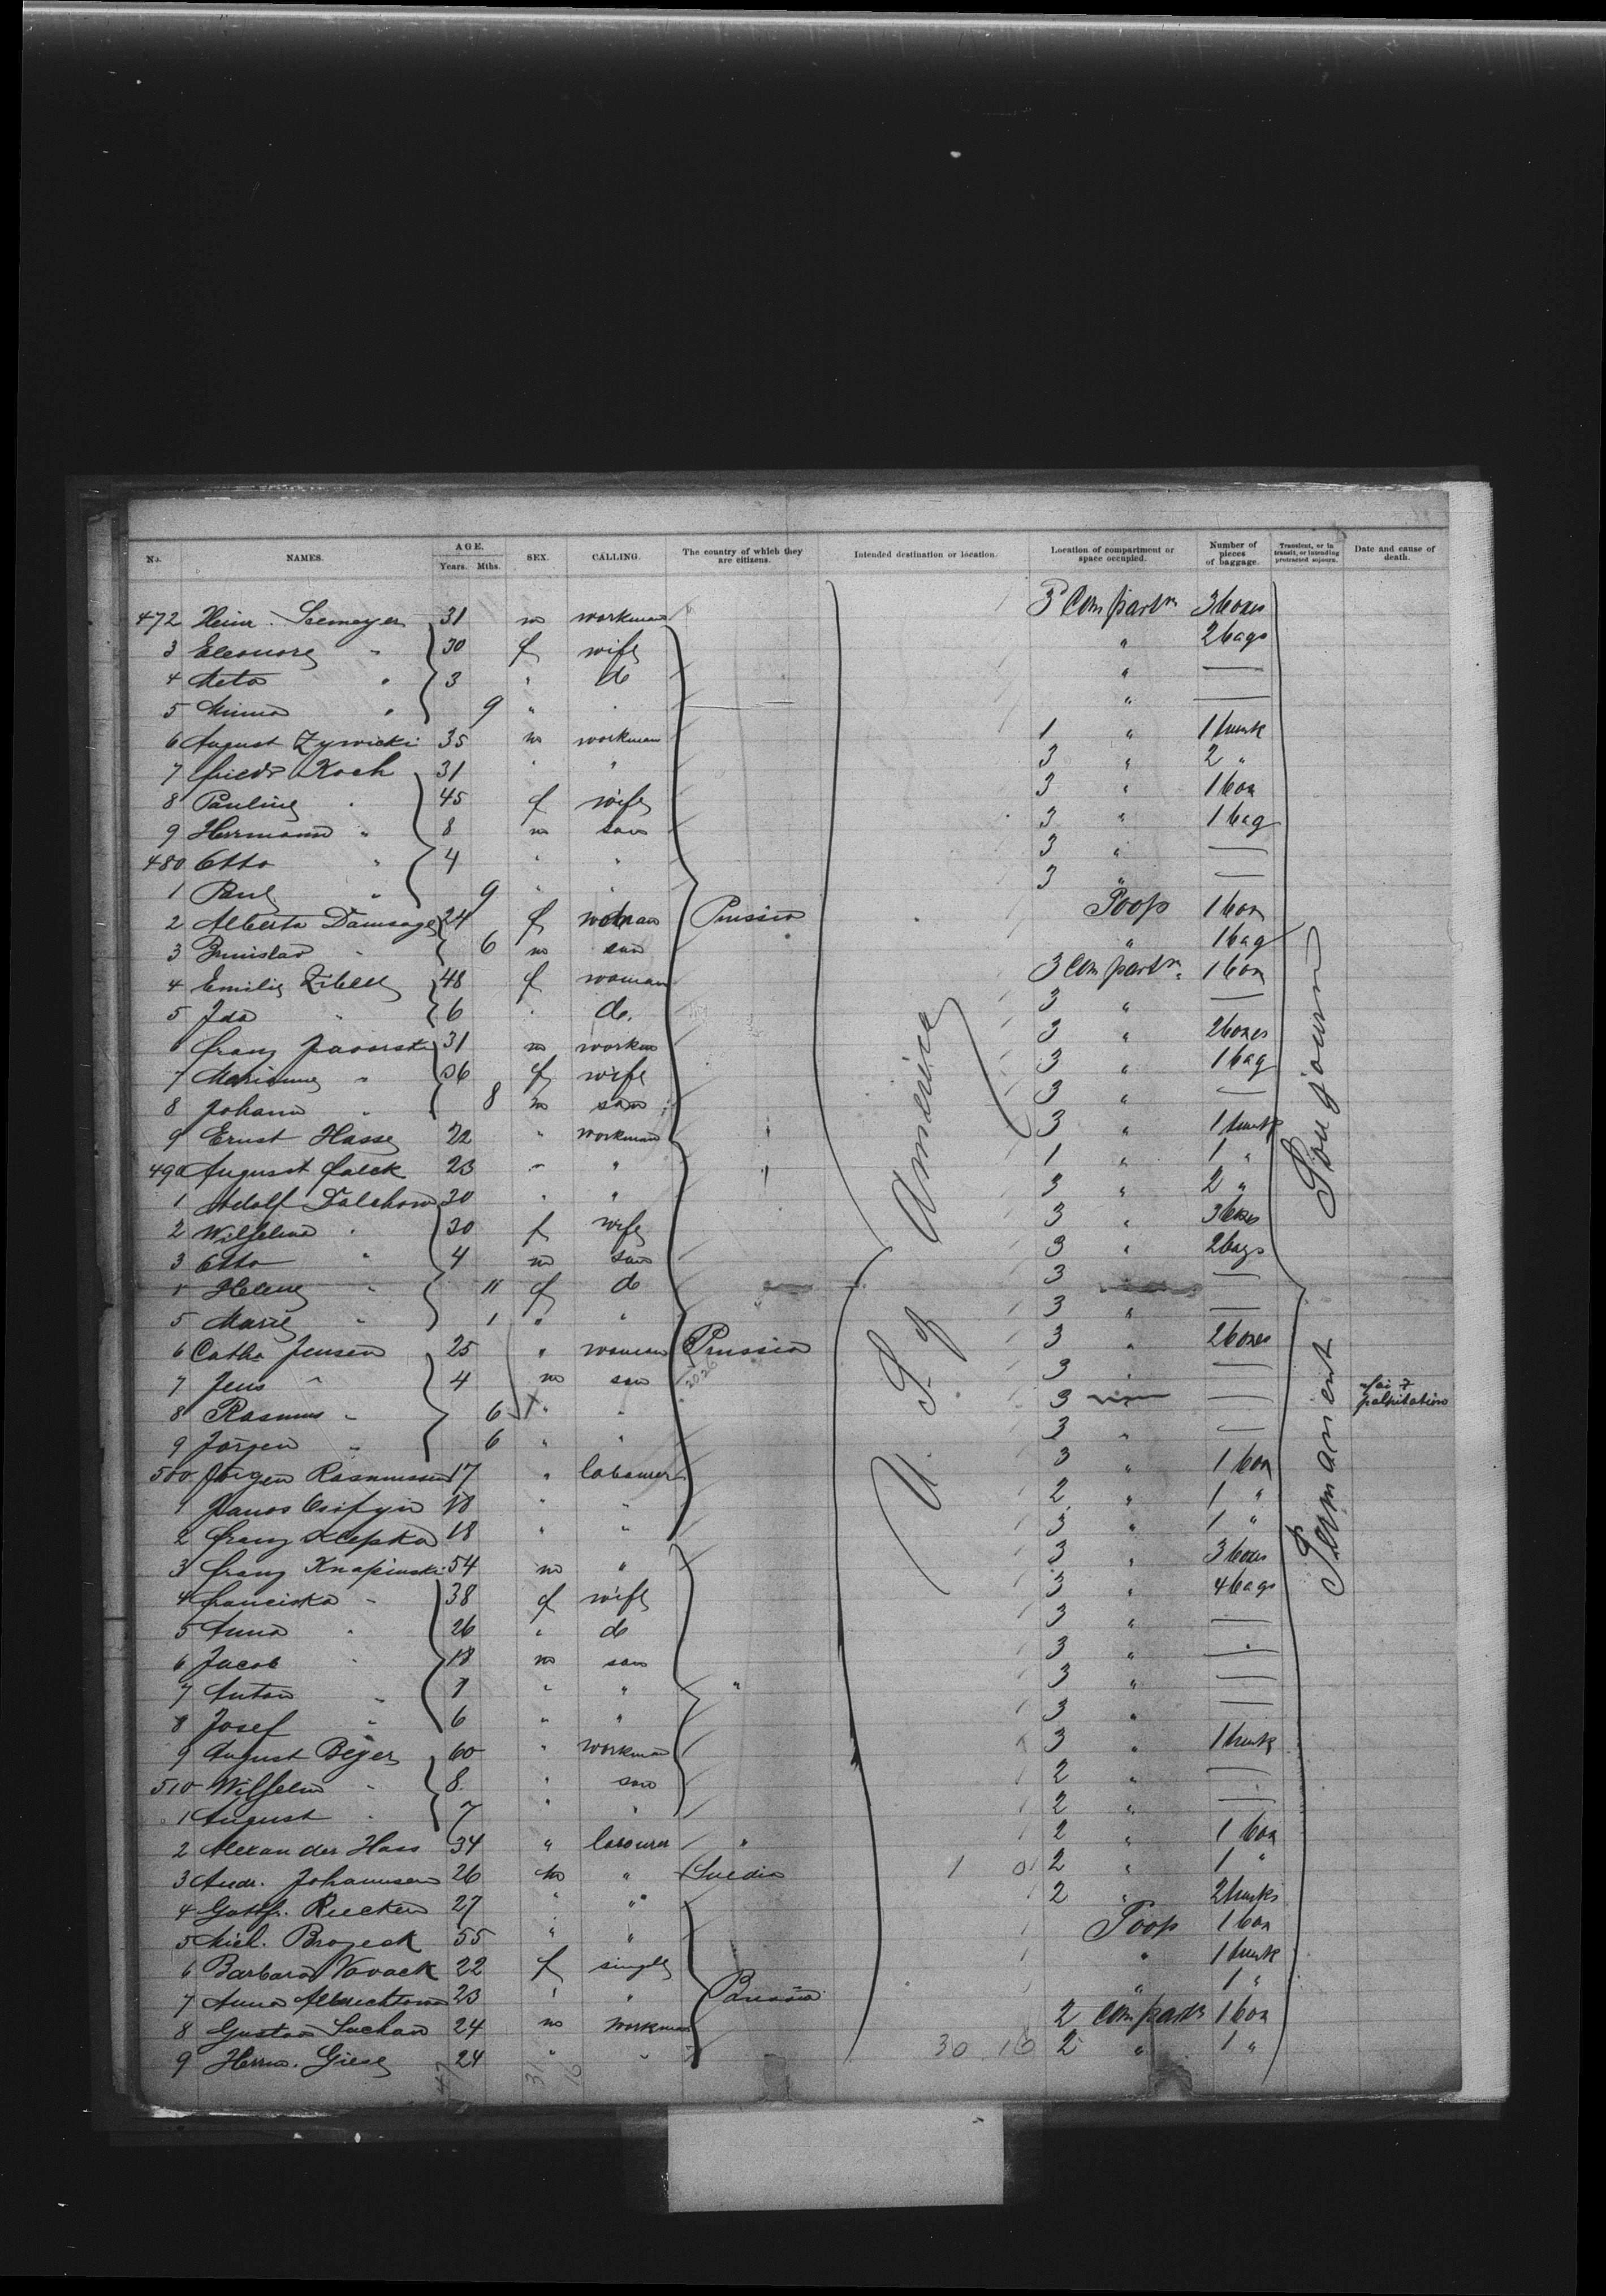 No. NAMES. AGE. Years. Mths. SEX. CALLING. The country of which they are citizens. Intended destination or location. Location of compartment or space occupied. Number of pieces of baggage. Transient, or in transit, or intending protracted sojourn. Date and cause of death.
472 Heinr. Seemeyer 31 m workman 3 Compartm 3 boxes
3 Eleonore " 30 f wife " 2 bags
4 Meta " 3 " do " —
5 Minna " 9 " " " —
6 August Zywicki 35 m workman 1 " 1 trunk
7 Friedr Koch 31 " " 3 " 2 "
8 Pauline " 45 f wife 3 " 1 box
9 Herrmann " 8 m son 3 " 1 bag
480 Otto " 4 " " 3 " —
1 Paul " 9 " " 3 " —
2 Alberta 24 f woman Prussia Poop 1 box
3 " 6 m son " 1 bag
4 Emilie Zibell 48 f woman 3 Compartm. 1 box
5 Ida " 6 " do. 3 " —
6 Franz 31 m workm 3 " 2 boxes
7 Marianne " 36 f wife 3 " 1 bag
8 Johann " 8 m son 3 " —
9 Ernst Hasse 22 " workman 3 " 1 trunk
490 August Falck 23 " " 1 " 1 "
1 Adolf Dalchow 30 " " 3 " 2 "
2 Wilhelmine " 30 f wife 3 " 3 boxes
3 Otto " 4 m son 3 " 2 bags
4 Helene " 11 f do 3 —
5 Marie " 1 " " 3 " —
6 Cathr. Jensen 25 " woman Prussia 3 " 2 boxes
7 Jens " 4 m son 3 " —
8 Rasmus " 6 " " 3 — palpitation
9 Jörgen " 6 " " 3 " —
500 Jörgen Rasmussen 17 " labourer 3 " 1 box
1 Janos 18 " " 2 " 1 "
2 Franz Klepka 18 " " 3 " 1 "
3 Franz Knapinski 54 m " 3 " 3 boxes
4 Franciska " 38 f wife 3 " 4 bags
5 Anna " 26 " do 3 " —
6 Jacob " 18 m son 3 " —
7 Anton " 7 " " " 3 " —
8 Josef " 6 " " 3 " —
9 August Beyer 60 " workman 3 " 1 trunk
510 Wilhelm " 8 " son 2 " —
1 August " 7 " " 2 " —
2 Alexander Hass 34 " labourer " 2 " 1 box
3 Andr. Johannsen 26 m " Suedia 1 0 2 " 1 "
4 Gottfr. Ruecken 27 " " 2 " 2 trunks
5 Mich. Brozeck 55 " " Poop 1 box
6 Barbara Novack 22 f single " 1 trunk
7 Anna 23 " " " 1 "
8 Gustav Suchan 24 m workman 2 Compartm 1 box
9 Herrm. Giese 24 " " 30 16 2 " 1 "
U. S. of America
Permanent Sougjourn
2026
47
31
16